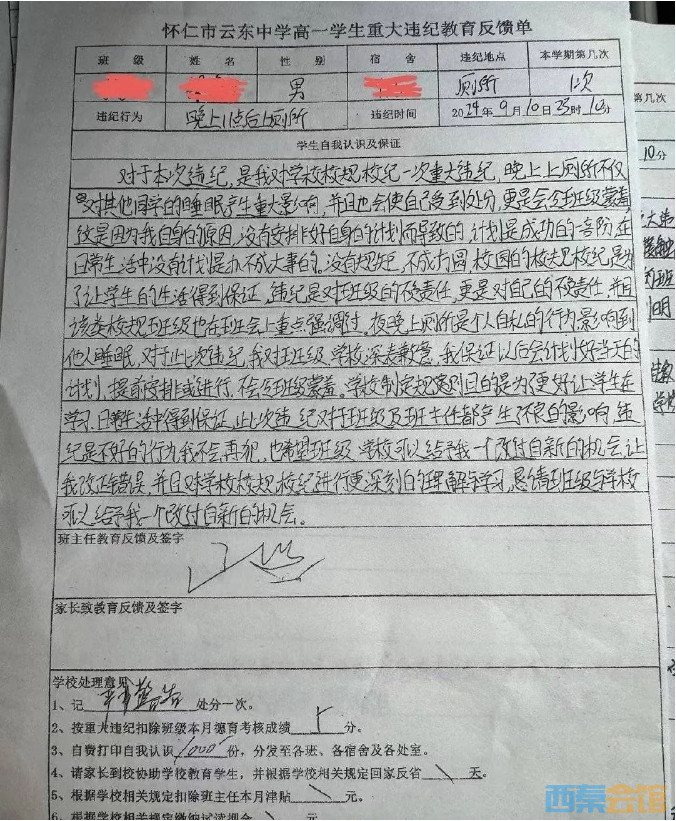 怀仁市云东中学高一学生重大违纪教育反馈单
班 级 姓 名 性 别 宿 舍 违纪地点 本学期第几次
男 厕所 1次
第几次
违纪行为 晚上11点后上厕所 违纪时间 2024年9月10日23时10分
10分
学生自我认识及保证
对于本次违纪,是我对学校校规、校纪一次重大违纪,晚上上厕所不仅
对其他同学的睡眠产生重大影响,并且也会使自己受到处分,更是会令班级蒙羞
这是因为我自身的原因,没有安排好自身的计划而导致的,计划是成功的音阶,在
日常生活中没有计划是办不成大事的。没有规矩,不成方圆,校园的校规校纪是为
了让学生的生活得到保证,违纪是对班级的不负责任,更是对自己的不负责任,并且
该类校规班级也在班会上重点强调过,夜晚上厕所是个人自私的行为影响到
他人睡眠,对于此次违纪,我对班级、学校深表歉意,我保证以后会计划好当天的
计划,提前安排或进行,不会令班级蒙羞。学校制定规则目的是为更好让学生在
学习、日常生活中得到保证,此次违纪对于班级及班主任都产生了不良的影响,违
纪是不好的行为我不会再犯,也希望班级、学校可以给予我一个改过自新的机会,让
我改正错误,并且对学校校规、校纪进行更深刻的理解与学习,恳请班级与学校
可以给予我一个改过自新的机会。
班主任教育反馈及签字
家长致教育反馈及签字
学校处理意见
1、记 警告 处分一次。
2、按重大违纪扣除班级本月德育考核成绩 5 分。
3、自费打印自我认识 1000 份,分发至各班、各宿舍及各处室。
4、请家长到校协助学校教育学生,并根据学校相关规定回家反省 \ 天。
5、根据学校相关规定扣除班主任本月津贴 \ 元。
6、根据学校相关规定缴纳试读押金 \ 元。
西秦会馆